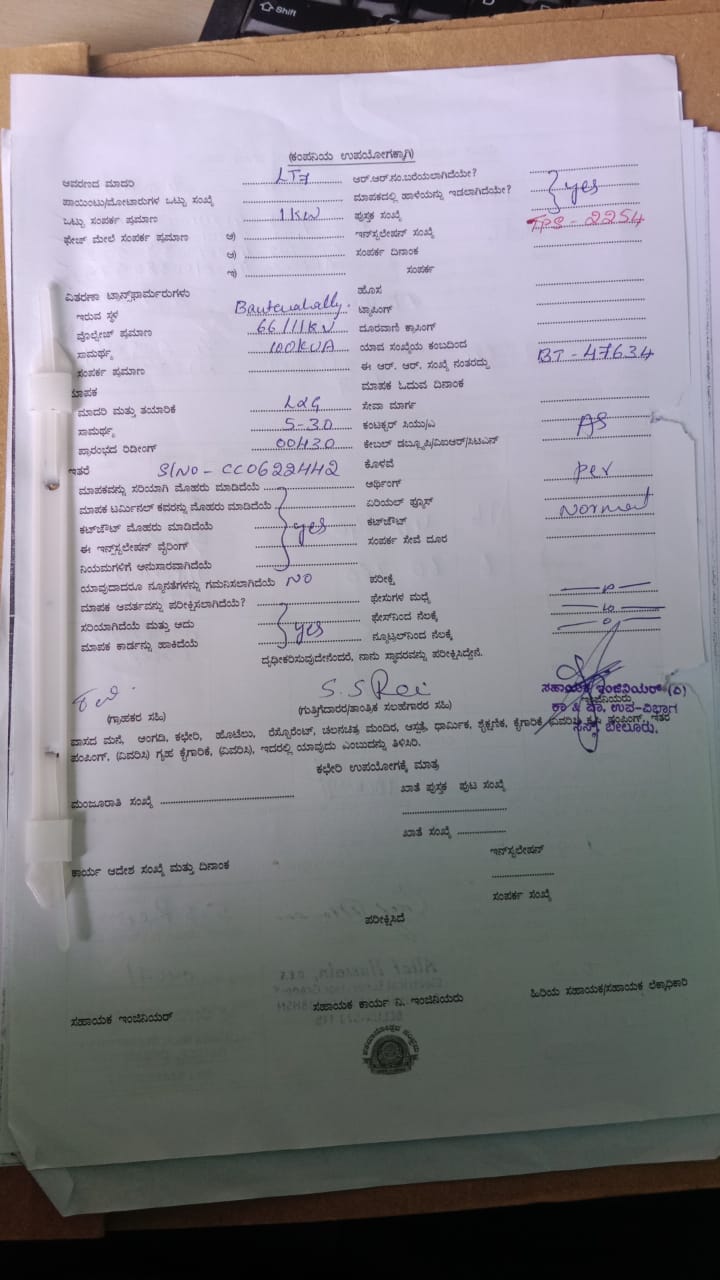 Shift
(ಕಂಪನಿಯ ಉಪಯೋಗಕ್ಕಾಗಿ)
ಆವರಣದ ಮಾದರಿ LT7 ಆರ್.ಆರ್.ನಂ.ಬರೆಯಲಾಗಿದೆಯೇ?
ಪಾಯಿಂಟು/ಮೋಟಾರುಗಳ ಒಟ್ಟು ಸಂಖ್ಯೆ ಮಾಪಕದಲ್ಲಿ ಹಾಳೆಯನ್ನು ಇಡಲಾಗಿದೆಯೇ? yes
ಒಟ್ಟು ಸಂಪರ್ಕ ಪ್ರಮಾಣ 1KW ಪುಸ್ತಕ ಸಂಖ್ಯೆ
ಫೇಜ್ ಮೇಲೆ ಸಂಪರ್ಕ ಪ್ರಮಾಣ ಇನ್‌ಸ್ಟಲೇಷನ್ ಸಂಖ್ಯೆ TPS-2254
ಸಂಪರ್ಕ ದಿನಾಂಕ
ಇ) ಸಂಪರ್ಕ
ವಿತರಣಾ ಟ್ರಾನ್ಸ್‌ಫಾರ್ಮರುಗಳು ಹೊಸ
ಇರುವ ಸ್ಥಳ ಟ್ಯಾಪಿಂಗ್
ವೊಲ್ಟೇಜ್ ಪ್ರಮಾಣ 66/11KV ದೂರವಾಣಿ ಕ್ರಾಸಿಂಗ್
ಸಾಮರ್ಥ್ಯ 100KVA ಯಾವ ಸಂಖ್ಯೆಯ ಕಂಬದಿಂದ
ಸಂಪರ್ಕ ಪ್ರಮಾಣ ಈ ಆರ್. ಆರ್. ಸಂಖ್ಯೆ ನಂತರದ್ದು BT-47634
ಮಾಪಕ ಮಾಪಕ ಓದುವ ದಿನಾಂಕ
ಮಾದರಿ ಮತ್ತು ತಯಾರಿಕೆ L&G ಸೇವಾ ಮಾರ್ಗ
ಸಾಮರ್ಥ್ಯ 5-30 ಕಂಟಕ್ಟರ್ ಸಿಯು/ಎ AS
ಪ್ರಾರಂಭದ ರಿಡೀಂಗ್ 00430 ಕೇಬಲ್ ಡಬ್ಲ್ಯೂಪಿ/ಐಆರ್/ಸಿಟಿಎನ್
ಇತರೆ S/NO-CC0622442 ಕೊಳವೆ
ಮಾಪಕವನ್ನು ಸರಿಯಾಗಿ ಮೊಹರು ಮಾಡಿದೆಯೆ ಆರ್ಥಿಂಗ್ per
ಮಾಪಕ ಟರ್ಮಿನಲ್ ಕವರನ್ನು ಮೊಹರು ಮಾಡಿದೆಯೆ ಏರಿಯಲ್ ಫ್ಯೂಸ್
ಕಟ್‌ಔಟ್ ಮೊಹರು ಮಾಡಿದೆಯೆ yes ಕಟ್‌ಔಟ್
ಈ ಇನ್‌ಸ್ಟಲೇಷನ್ ವೈರಿಂಗ್ ಸಂಪರ್ಕ ಸೇವೆ ದೂರ
ನಿಯಮಗಳಿಗೆ ಅನುಸಾರವಾಗಿದೆಯೆ
ಯಾವುದಾದರೂ ನ್ಯೂನತೆಗಳನ್ನು ಗಮನಿಸಲಾಗಿದೆಯೆ NO ಪರೀಕ್ಷೆ
ಮಾಪಕ ಆವರ್ತವನ್ನು ಪರೀಕ್ಷಿಸಲಾಗಿದೆಯೆ? ಫೇಸುಗಳ ಮಧ್ಯೆ
ಸರಿಯಾಗಿದೆಯೆ ಮತ್ತು ಅದು yes ಫೇಸ್‌ನಿಂದ ನೆಲಕ್ಕೆ
ಮಾಪಕ ಕಾರ್ಡನ್ನು ಹಾಕಿದೆಯೆ ನ್ಯೂಟ್ರಲ್‌ನಿಂದ ನೆಲಕ್ಕೆ
ದೃಢೀಕರಿಸುವುದೇನೆಂದರೆ, ನಾನು ಸ್ಥಾವರವನ್ನು ಪರೀಕ್ಷಿಸಿದ್ದೇನೆ.
S. S Roi
(ಗ್ರಾಹಕರ ಸಹಿ) (ಗುತ್ತಿಗೆದಾರರ/ತಾಂತ್ರಿಕ ಸಲಹೆಗಾರರ ಸಹಿ)
ಸಹಾಯಕ ಇಂಜಿನಿಯರ್ (ವಿ)
ಬೇಲೂರು.
ವಾಸದ ಮನೆ, ಅಂಗಡಿ, ಕಛೇರಿ, ಹೊಟೆಲು, ರೆಸ್ಟೊರೆಂಟ್, ಚಲನಚಿತ್ರ ಮಂದಿರ, ಆಸ್ಪತ್ರೆ, ಧಾರ್ಮಿಕ, ಶೈಕ್ಷಣಿಕ, ಕೈಗಾರಿಕೆ (ವಿವರಿಸಿ) ಕೃಷಿ ಪಂಪಿಂಗ್, ಇತರ
ಪಂಪಿಂಗ್, (ವಿವರಿಸಿ) ಗೃಹ ಕೈಗಾರಿಕೆ, (ವಿವರಿಸಿ), ಇದರಲ್ಲಿ ಯಾವುದು ಎಂಬುದನ್ನು ತಿಳಿಸಿರಿ.
ಕಛೇರಿ ಉಪಯೋಗಕ್ಕೆ ಮಾತ್ರ
ಮಂಜೂರಾತಿ ಸಂಖ್ಯೆ ಖಾತೆ ಪುಸ್ತಕ ಪುಟ ಸಂಖ್ಯೆ
ಖಾತೆ ಸಂಖ್ಯೆ
ಕಾರ್ಯ ಆದೇಶ ಸಂಖ್ಯೆ ಮತ್ತು ದಿನಾಂಕ ಇನ್‌ಸ್ಟಲೇಷನ್
ಸಂಪರ್ಕ ಸಂಖ್ಯೆ
ಪರೀಕ್ಷಿಸಿದೆ
ಸಹಾಯಕ ಇಂಜಿನಿಯರ್ ಸಹಾಯಕ ಕಾರ್ಯ ನಿ. ಇಂಜಿನಿಯರು ಹಿರಿಯ ಸಹಾಯಕ/ಸಹಾಯಕ ಲೆಕ್ಕಾಧಿಕಾರಿ